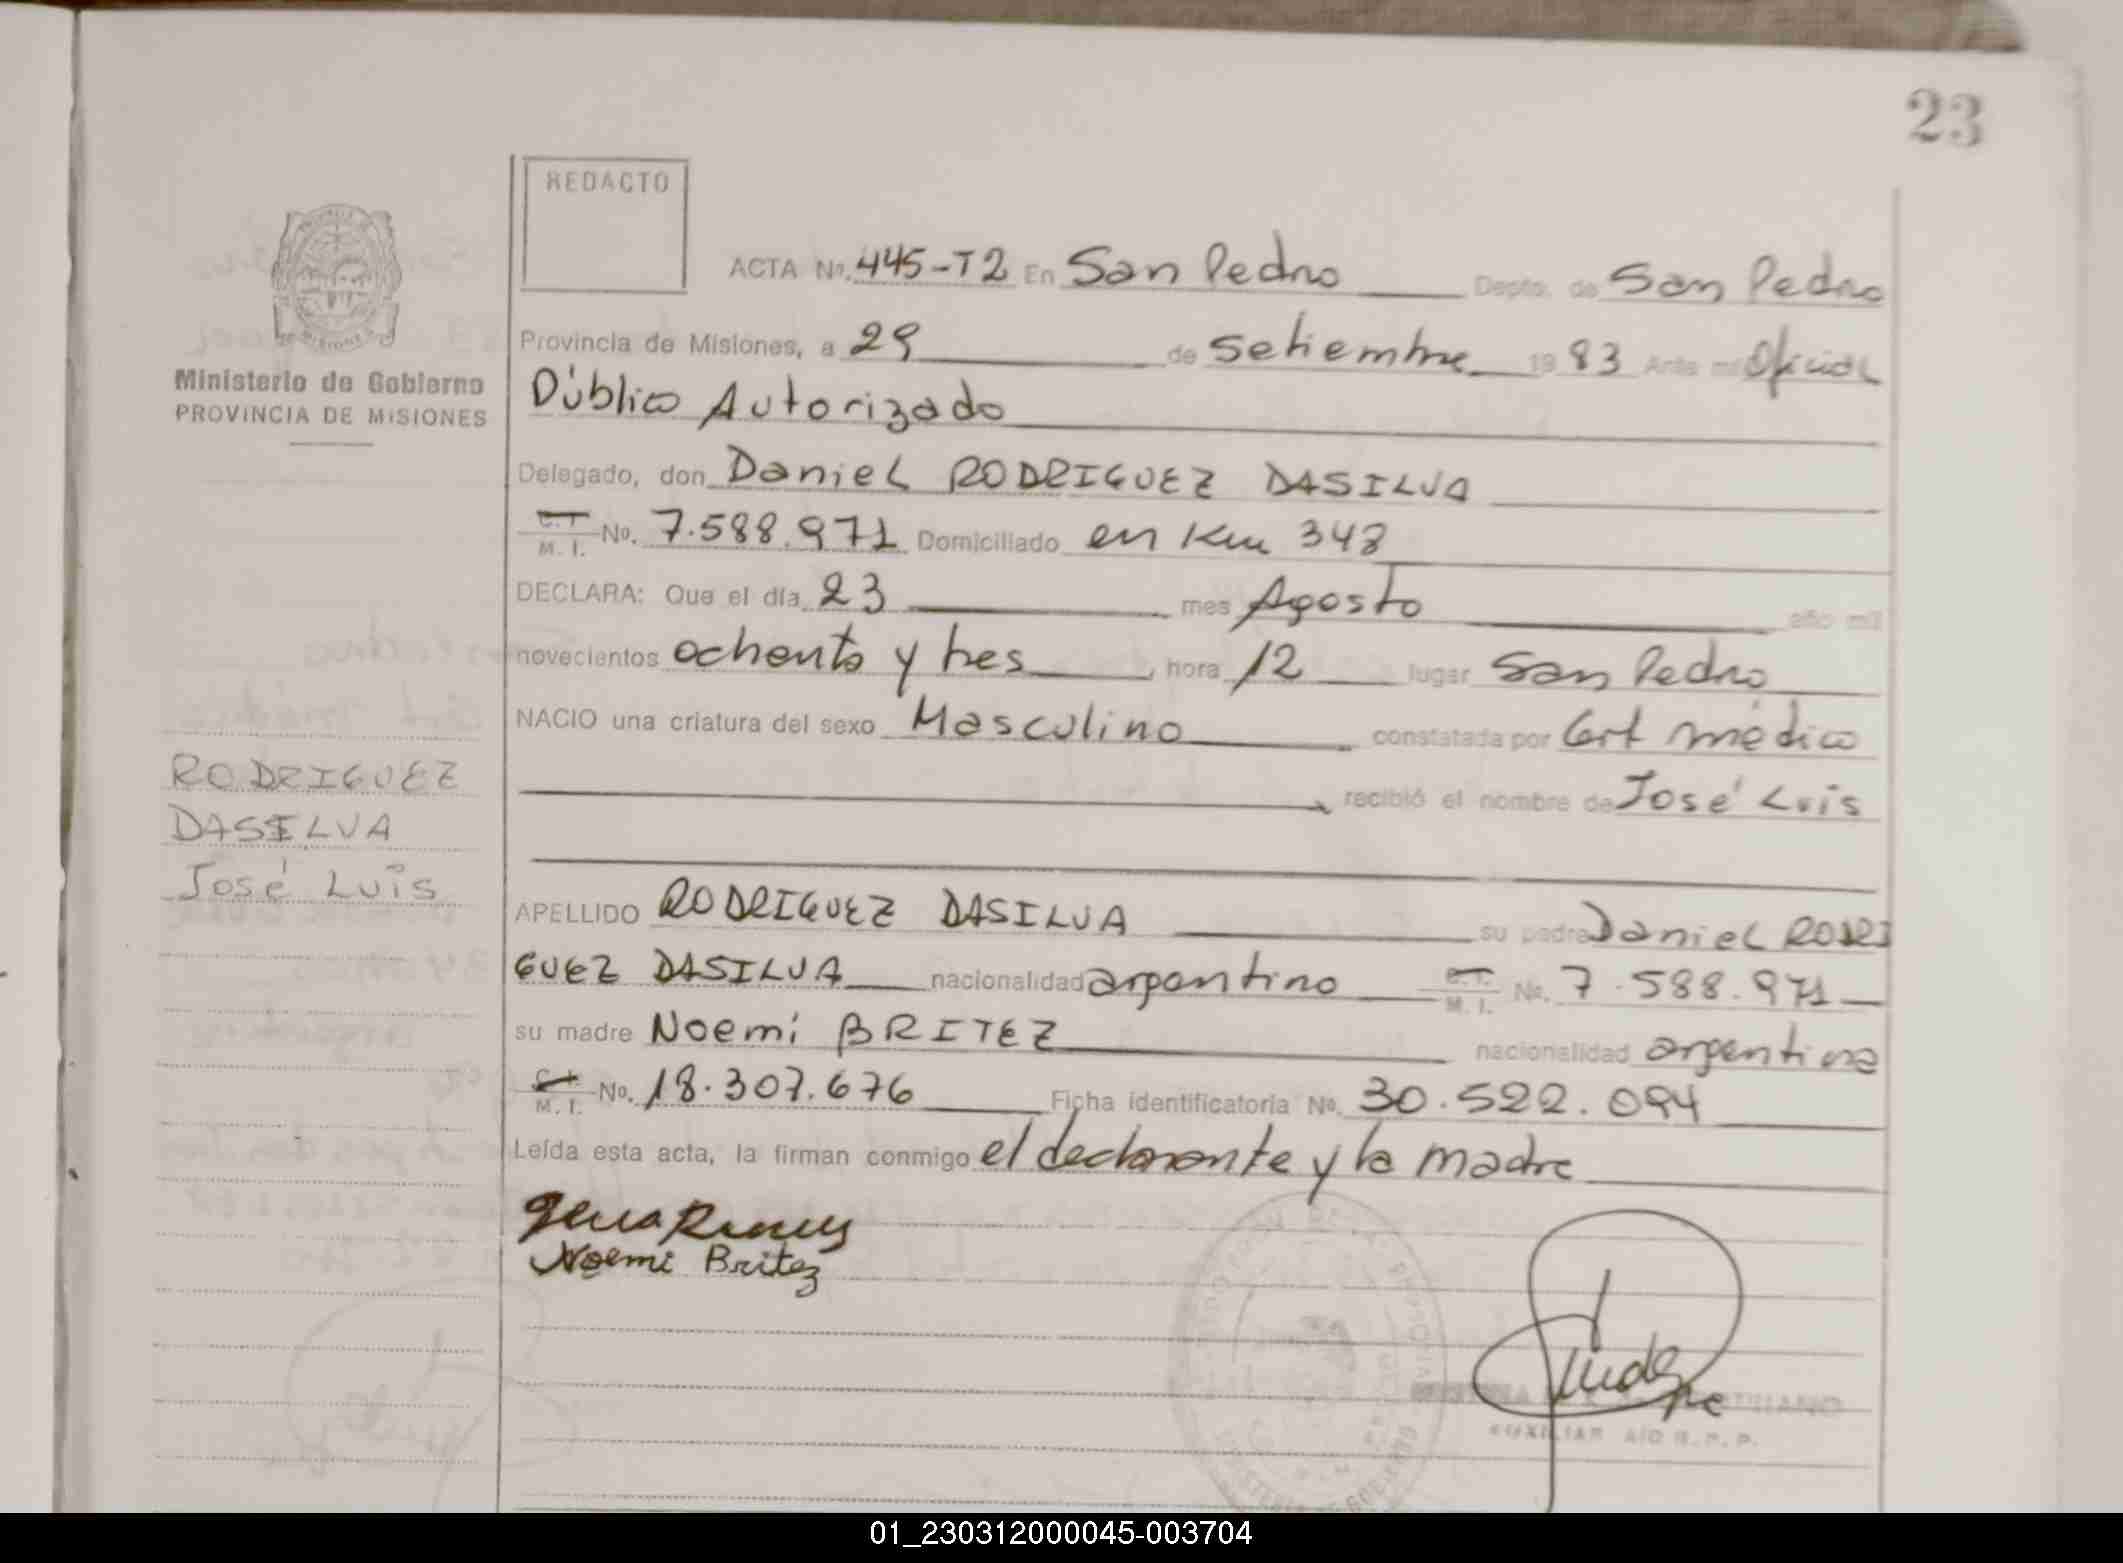 23
REDACTO
ACTA No. 445-T2 En San Pedro Depto. de San Pedro
Provincia de Misiones, a 29 de Setiembre 1983 Ante mi Oficial
Público Autorizado
Delegado, don Daniel RODRIGUEZ DASILVA
C.I. M. I. No. 7.588.971 Domiciliado en Km 348
DECLARA: Que el día 23 mes Agosto año mil
novecientos ochenta y tres, hora 12 lugar San Pedro
NACIO una criatura del sexo Masculino constatada por Cert médico
recibió el nombre de José Luis
APELLIDO RODRIGUEZ DASILVA su padre Daniel RODRI
GUEZ DASILVA nacionalidad argentino C.I. M. I. No. 7.588.971
su madre Noemí BRITEZ nacionalidad argentina
C.I. M. I. No. 18.307.676 Ficha identificatoria No. 30.522.094
Leída esta acta, la firman conmigo el declarante y la madre
Noemi Britez
AUXILIAR
Ministerio de Gobierno
PROVINCIA DE MISIONES
RODRIGUEZ
DASILVA
José Luis
01_230312000045-003704